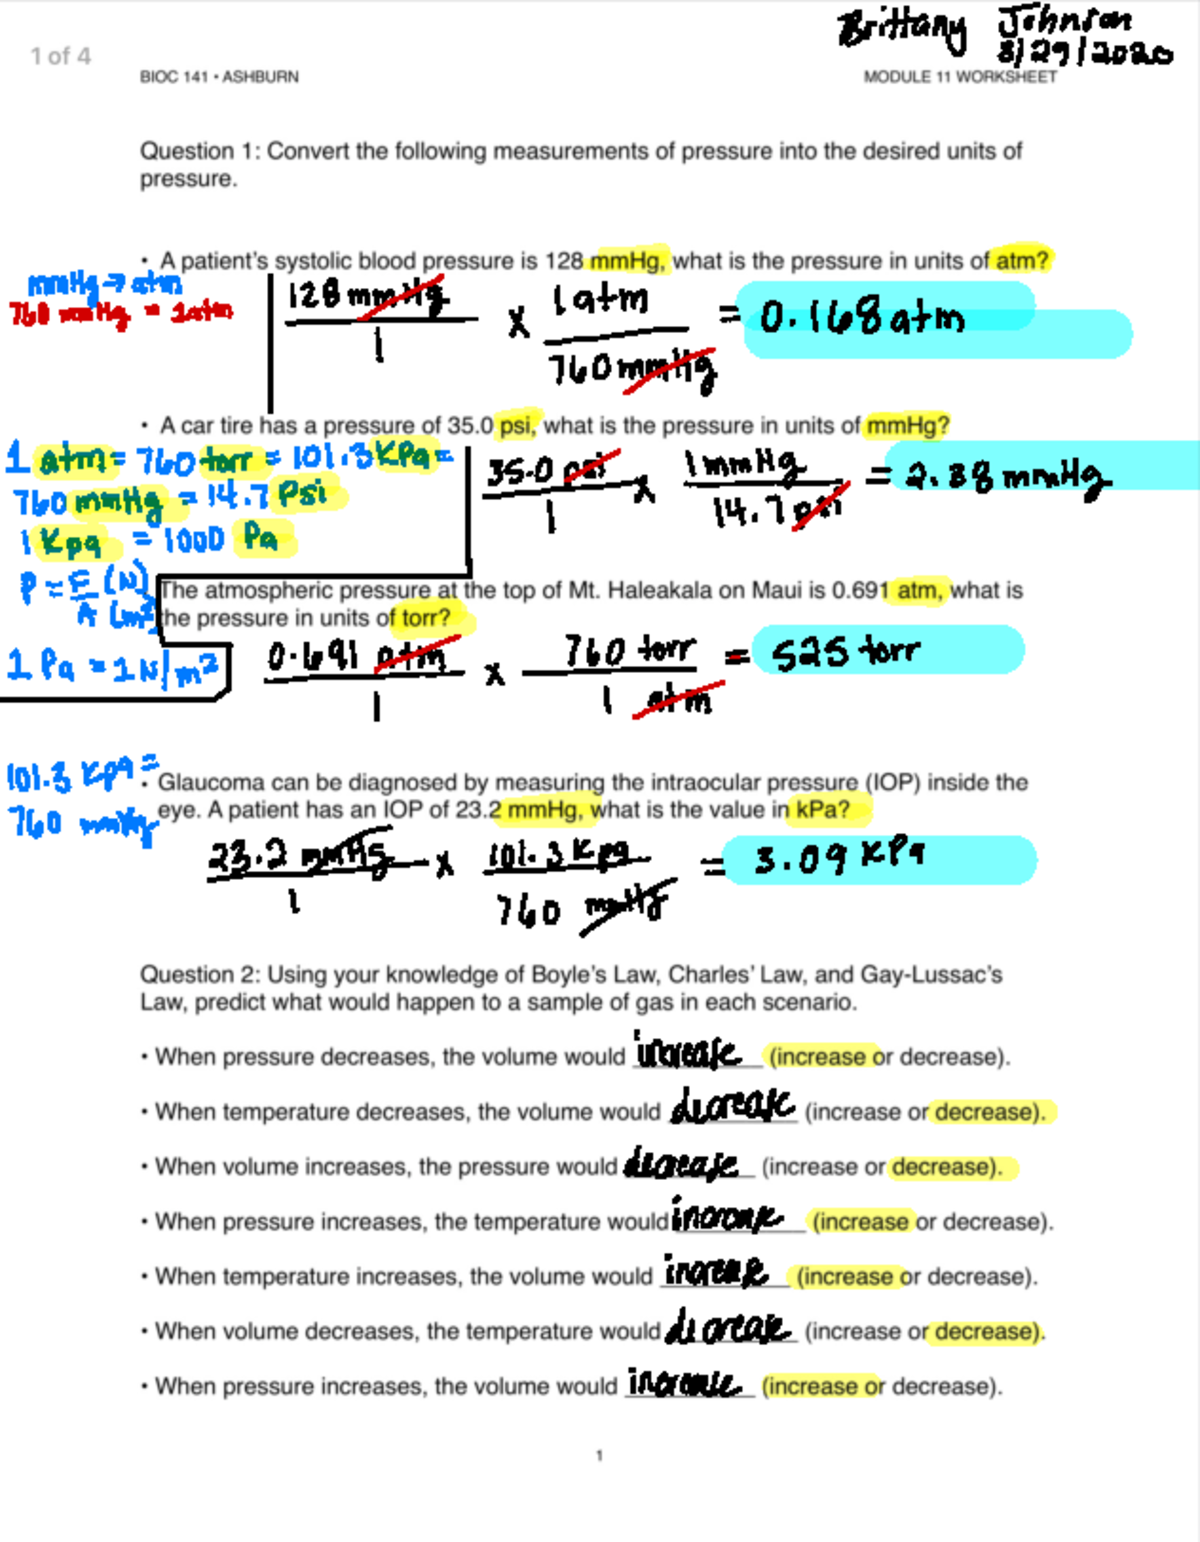 Brittany Johnson
8/29/2020
1 of 4
BIOC 141 • ASHBURN
MODULE 11 WORKSHEET
Question 1: Convert the following measurements of pressure into the desired units of
pressure.
• A patient's systolic blood pressure is 128 mmHg, what is the pressure in units of atm?
mmHg → atm
760 mmHg = 1atm
128 mmHg
1
x
1 atm
760 mmHg
= 0.168 atm
• A car tire has a pressure of 35.0 psi, what is the pressure in units of mmHg?
1 atm = 760 torr = 101.3 KPa =
760 mmHg = 14.7 Psi
1 Kpa = 1000 Pa
P = F (N)
A (m²)
1 Pa = 1 N/m²
35.0 psi
1
x
1 mmHg
14.7 psi
= 2.38 mmHg
The atmospheric pressure at the top of Mt. Haleakala on Maui is 0.691 atm, what is
the pressure in units of torr?
0.691 atm
1
x
760 torr
1 atm
= 525 torr
101.3 Kpa =
760 mmHg
• Glaucoma can be diagnosed by measuring the intraocular pressure (IOP) inside the
eye. A patient has an IOP of 23.2 mmHg, what is the value in kPa?
23.2 mmHg
1
x
101.3 Kpa
760 mmHg
= 3.09 KPa
Question 2: Using your knowledge of Boyle's Law, Charles' Law, and Gay-Lussac's
Law, predict what would happen to a sample of gas in each scenario.
• When pressure decreases, the volume would increase (increase or decrease).
• When temperature decreases, the volume would decrease (increase or decrease).
• When volume increases, the pressure would decrease (increase or decrease).
• When pressure increases, the temperature would increase (increase or decrease).
• When temperature increases, the volume would increase (increase or decrease).
• When volume decreases, the temperature would decrease (increase or decrease).
• When pressure increases, the volume would increase (increase or decrease).
1